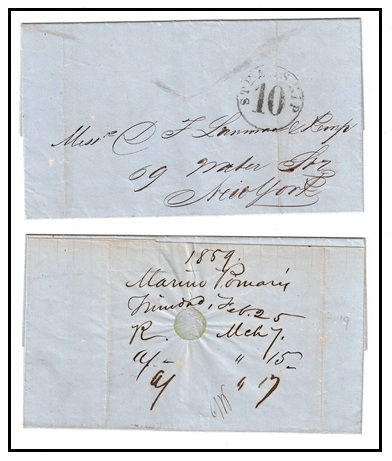 STEAMSHIP
10
Messrs D T Lanman & Kemp
69 Water Str
New York
1859.
Marino Pomares
Trinidad, Feb. 25
R. Mch 7.
a/- " 15-
a/ " 17